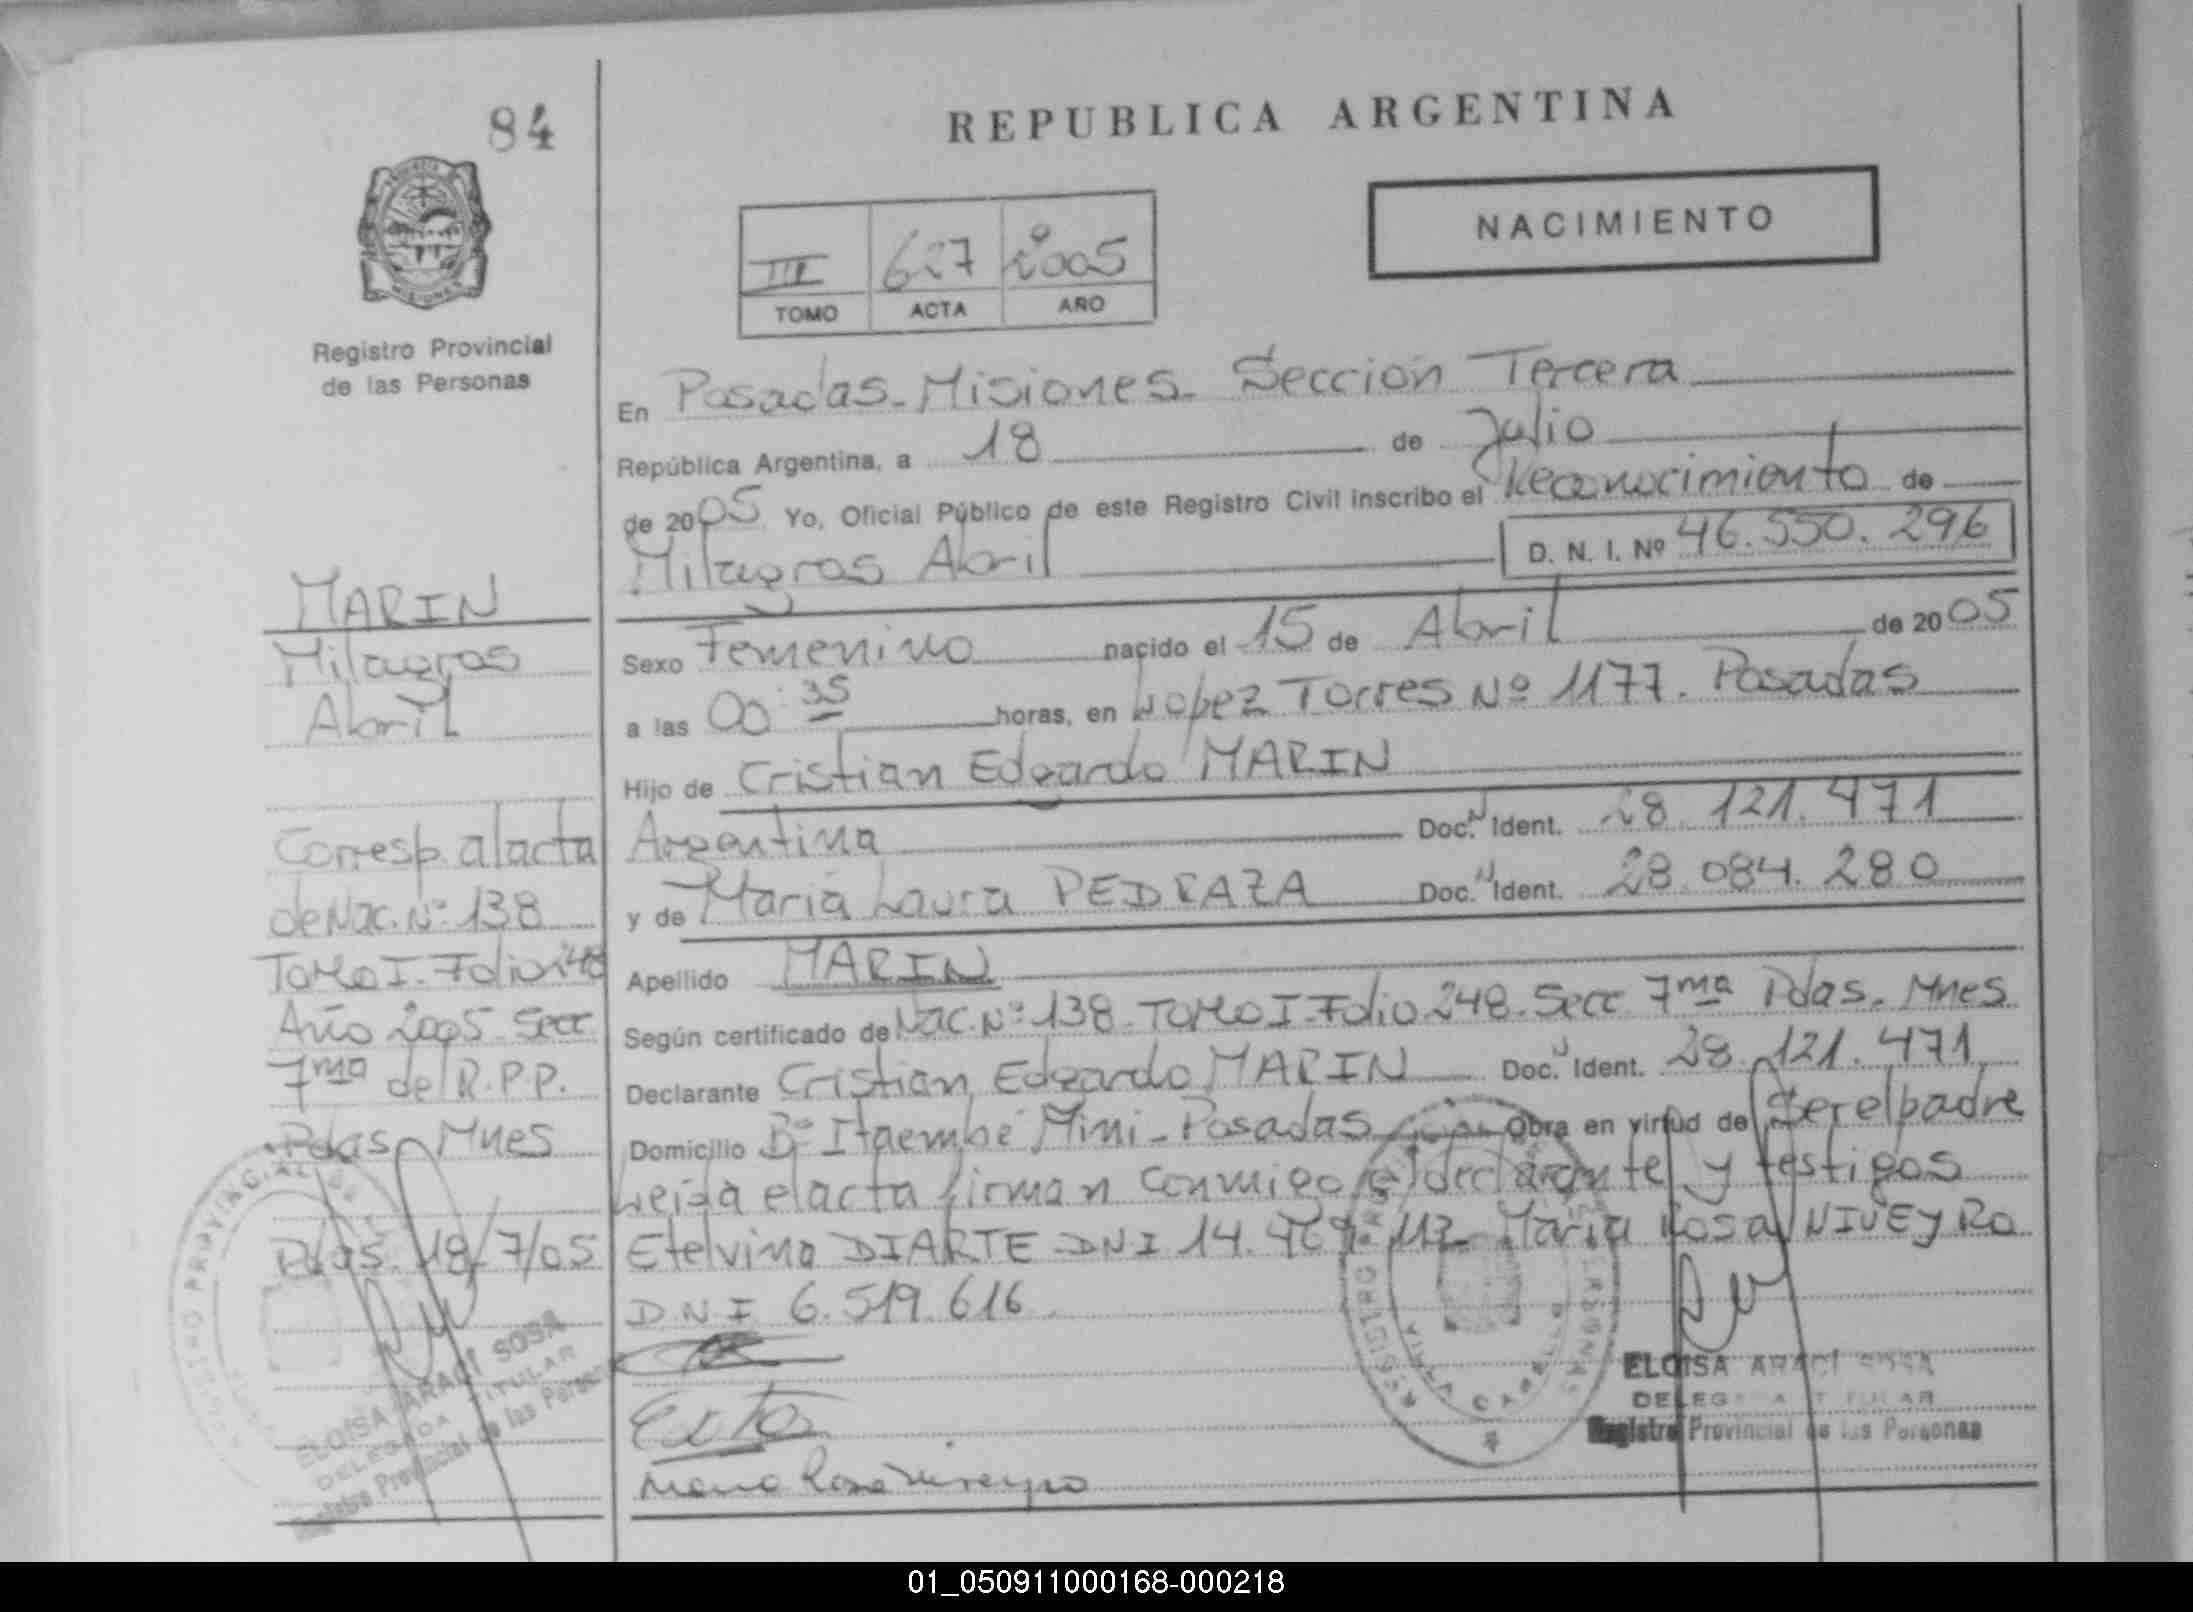 84
REPUBLICA ARGENTINA
NACIMIENTO
III 627 2005
TOMO ACTA AÑO
Registro Provincial
de las Personas
En Posadas - Misiones - Sección Tercera
República Argentina, a 18 de Julio
de 2005 Yo, Oficial Público de este Registro Civil inscribo el Reconocimiento de
Milagros Abril D. N. I. Nº 46.550.296
Sexo Femenino nacido el 15 de Abril de 2005
a las 00:35 horas, en Lopez Torres Nº 1177. Posadas
Hijo de Cristian Edgardo MARIN
Argentina Doc. N Ident. 28.121.471
y de Maria Laura PEDRAZA Doc. N Ident. 28.084.280
Apellido MARIN
Según certificado de Nac. Nº 138 - Tomo I - Folio 248 - Secc 7ma Pdas. Mnes.
Declarante Cristian Edgardo MARIN Doc. N Ident. 28.121.471
Domicilio Bº Itaembé Mini - Posadas Obra en virtud de Ser el padre
Leida el acta firman conmigo el declarante y testigos
Etelvino DIARTE DNI 14.469.113 Maria Rosa NIVEYRO
D.N.I 6.519.616
Maria Rosa Niveyro
ELOISA ARACÍ SOSA
DELEGADA TITULAR
Registro Provincial de las Personas
MARIN
Milagros
Abril
Corresp. al acta
de Nac. Nº 138
Tomo I - Folio 248
Año 2005 - Secc
7ma del R.P.P.
Pdas Mnes
Pdas. 18/7/05
ELOISA ARACÍ SOSA
DELEGADA TITULAR
Registro Provincial de las Personas
01_050911000168-000218